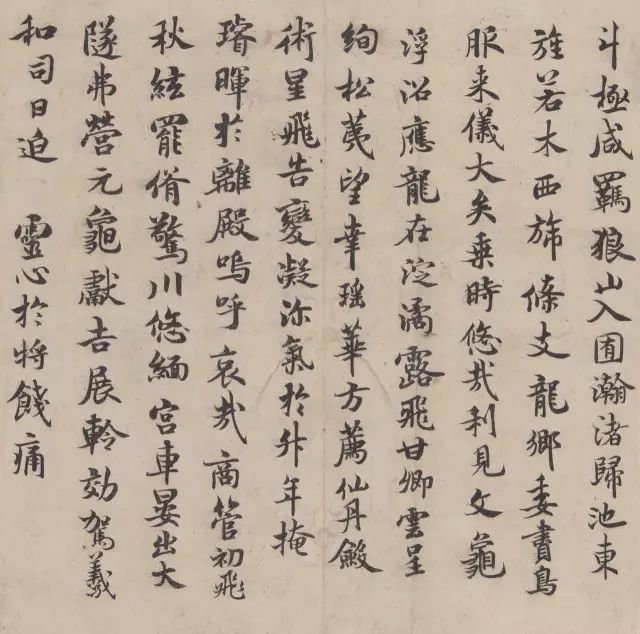 斗極咸羈狼山入囿瀚渚歸池東
旌若木西旆條支龍鄉委書鳥
服来儀大矣乘時悠哉利見文龜
浮沼應龍在淀潏露飛甘卿雲呈
絢松荑望幸瑶華方薦仙丹斂
術星飛告變凝沵氣於升年掩
璿暉於離殿嗚呼哀哉商管初飛
秋絃罷脩驚川悠緬宮車晏出大
隧弗營元龜獻吉展軨効駕羲
和司日迫 靈心於将餞痛